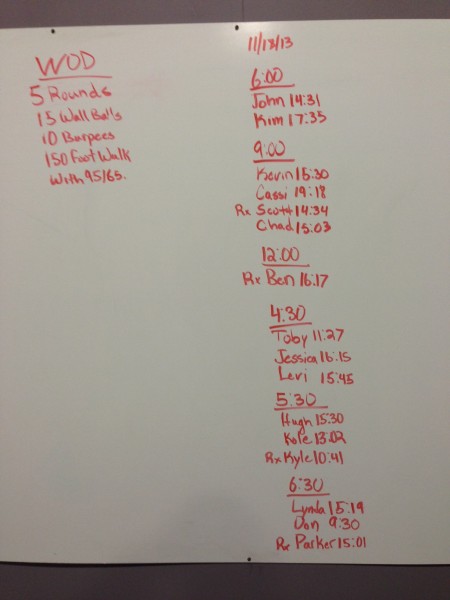 WOD
5 Rounds
15 Wall Balls
10 Burpees
150 Foot Walk
With 95/65.
11/18/13
6:00
John 14:31
Kim 17:35
9:00
Kevin 15:30
Cassi 19:18
Rx Scott 14:34
Chad 15:03
12:00
Rx Ben 16:17
4:30
Toby 11:27
Jessica 16:15
Levi 15:45
5:30
Hugh 15:30
Kole 13:02
Rx Kyle 10:41
6:30
Lynda 15:19
Don 9:30
Rx Parker 15:01